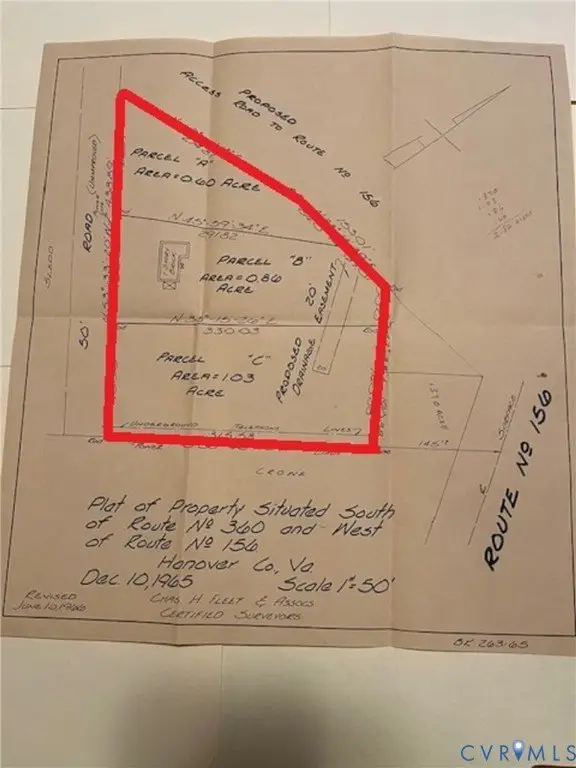 PROPOSED
ACCESS ROAD TO ROUTE Nº 156
PARCEL "A"
AREA=0.60 ACRE
ROAD (UNIMPROVED)
SLEDD
50'
N-45°-59'-34" E
PARCEL "B"
AREA=0.86
ACRE
1 STORY
BRICK
20'
PROPOSED
DRAINAGE EASEMENT
330.03
PARCEL "C"
AREA=1.03
ACRE
UNDERGROUND TELEPHONE LINES
ROD
POWER
315.53
145'±
CRONE
.570 ACRE
ROUTE Nº 156
Plat of Property Situated South
of Route Nº 360 and West
of Route Nº 156
Hanover Co, Va
Dec. 10, 1965 Scale 1"=50'
REVISED
JUNE 10, 1966
CHAS. H. FLEET & ASSOCS
CERTIFIED SURVEYORS
BK 263-65
CVRMLS